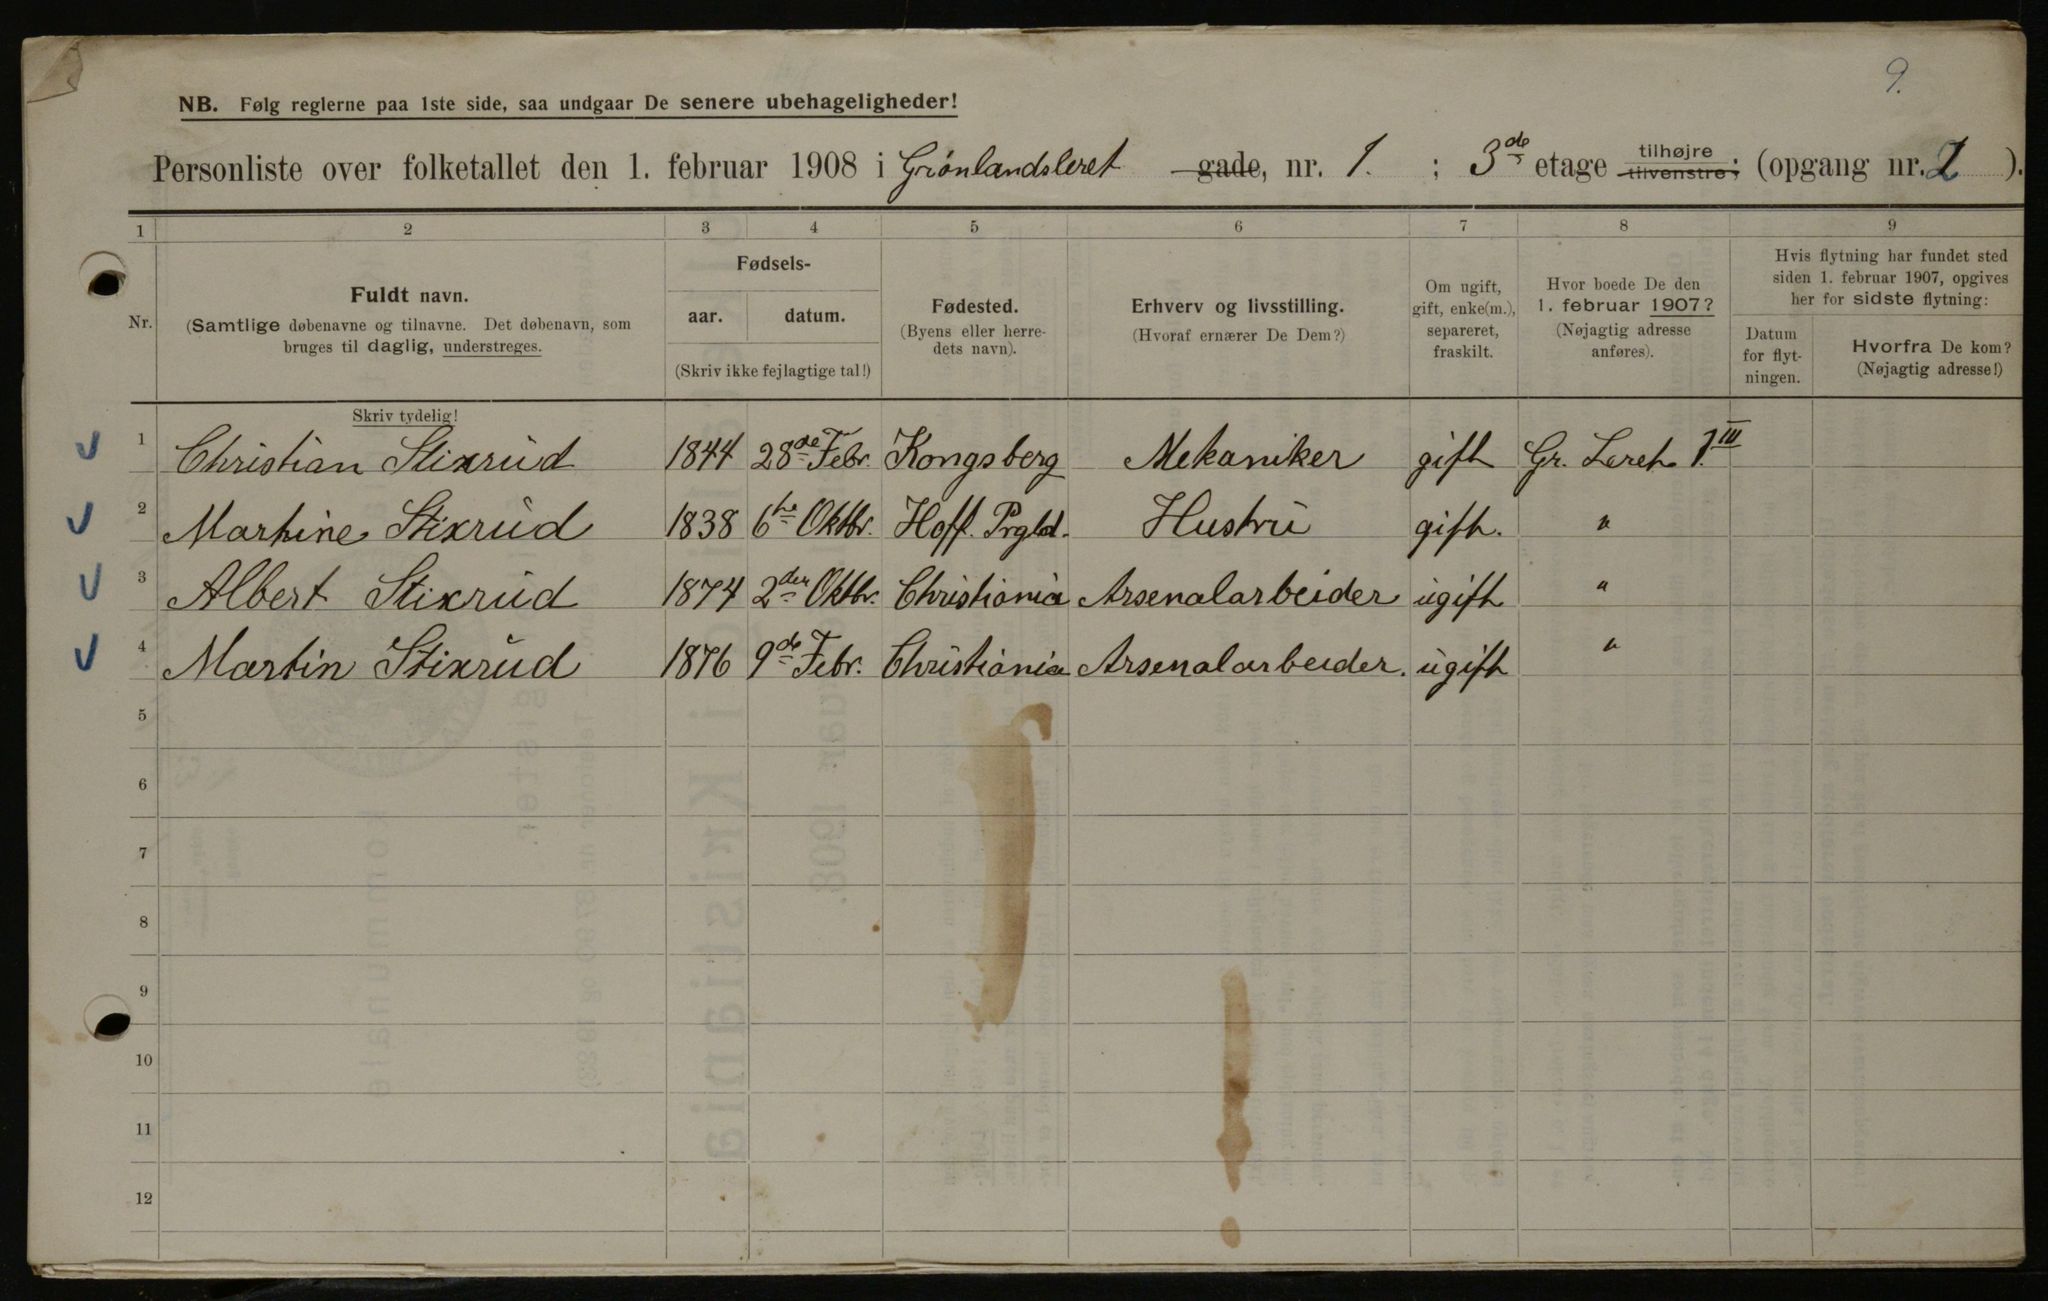 9.
NB. Følg reglerne paa 1ste side, saa undgaar De senere ubehageligheder!
Personliste over folketallet den 1. februar 1908 i Grønlandsleret gade, nr. 1. ; 3de etage tilhøjre tilvenstre; (opgang nr. 2 ).
1 2 3 4 5 6 7 8 9
Nr.
Fuldt navn.
(Samtlige døbenavne og tilnavne. Det døbenavn, som
bruges til daglig, understreges.
Skriv tydelig!
Fødsels-
aar. datum.
(Skriv ikke fejlagtige tal!)
Fødested.
(Byens eller herre-
dets navn).
Erhverv og livsstilling.
(Hvoraf ernærer De Dem?)
Om ugift,
gift, enke(m.),
separeret,
fraskilt.
Hvor boede De den
1. februar 1907?
(Nøjagtig adresse
anføres).
Hvis flytning har fundet sted
siden 1. februar 1907, opgives
her for sidste flytning:
Datum
for flyt-
ningen.
Hvorfra De kom?
(Nøjagtig adresse!)
1 Christian Stixrud 1844 28de Febr. Kongsberg Mekaniker gift Gr. Leret 1. III
2 Martine Stixrud 1838 6te Oktbr. Hoff. Prgld. Hustru gift. "
3 Albert Stixrud 1874 2den Oktbr. Christiania Arsenalarbeider ugift "
4 Martin Stixrud 1876 9de Febr. Christiania Arsenalarbeider. ugift "
5
6
7
8
9
10
11
12